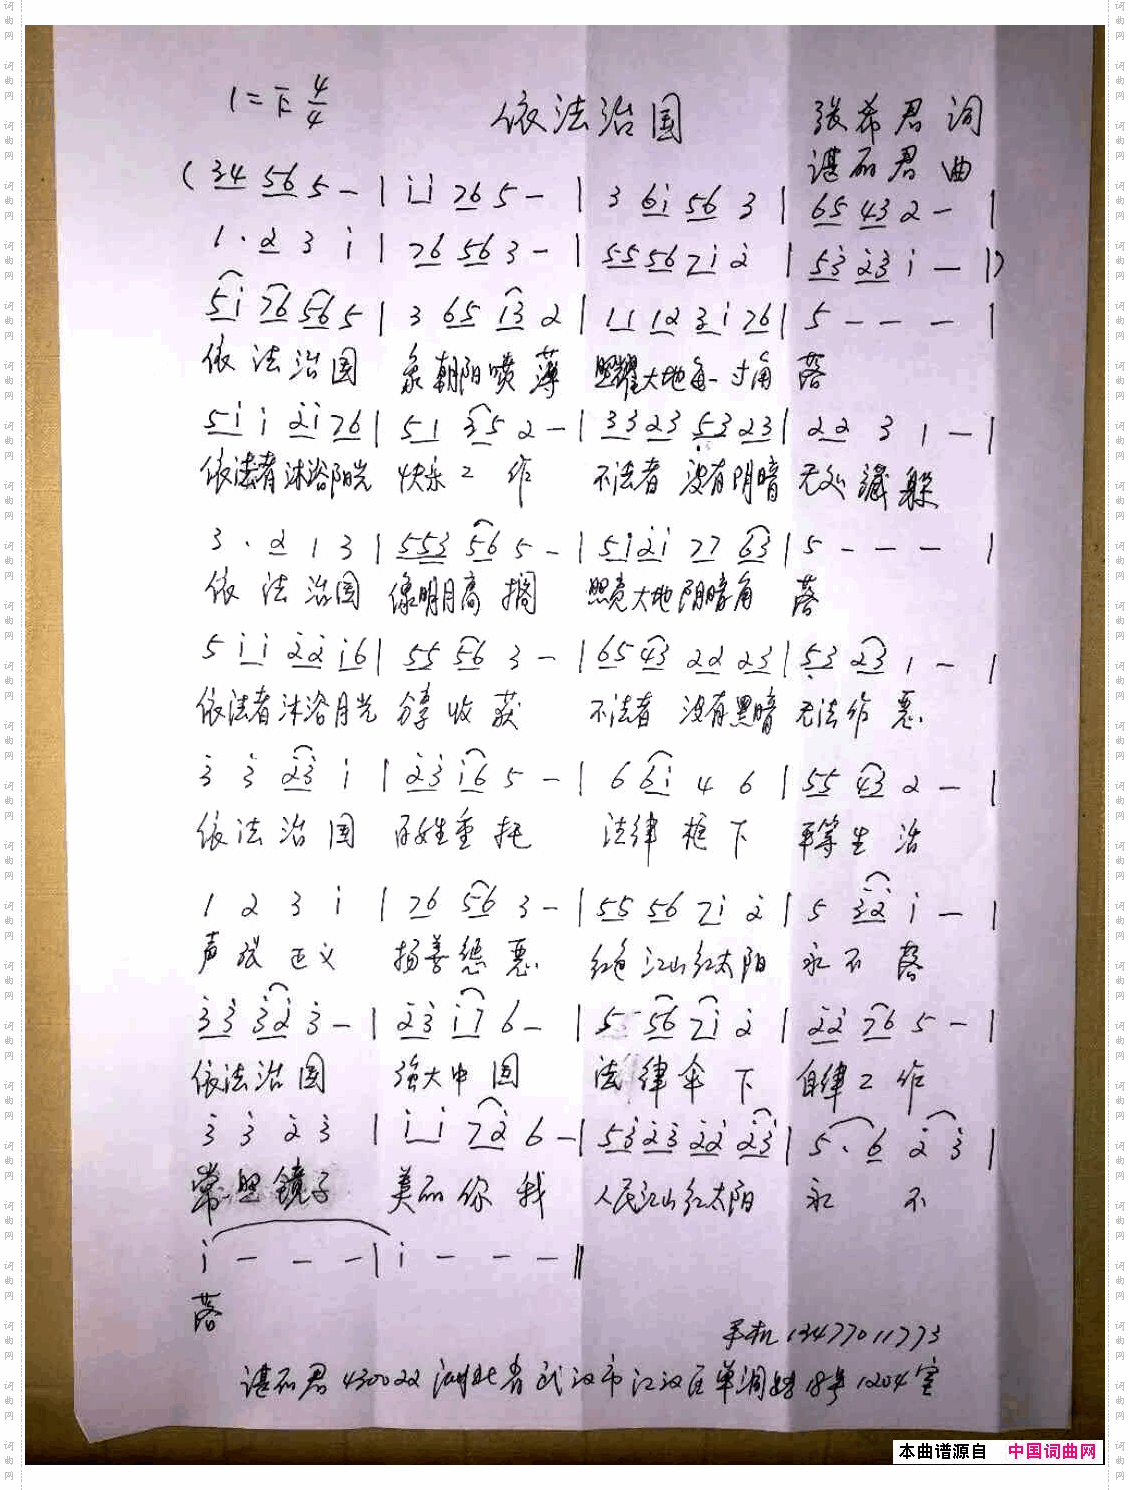 1=F 4/4 依法治国 张希君 词
谌丽君 曲
(34 56 5 - | i i 76 5 - | 3 6i 56 3 | 65 43 2 - |
1 · 2 3 i | 76 56 3 - | 55 56 7i 2 | 53 23 i - |)
5i 76 56 5 | 3 65 13 2 | 11 12 3i 76 | 5 - - - |
依法治国 象朝阳喷薄 照耀大地每一寸角落
5i i 2i 76 | 51 35 2 - | 33 23 53 23 | 22 3 1 - |
依法者沐浴阳光 快乐工作 不法者 没有阴暗 无处藏躲
3 · 2 1 3 | 553 56 5 - | 512i 77 63 | 5 - - - |
依法治国 像明月高搁 照亮大地阴暗角落
5 i i 22 i6 | 55 56 3 - | 65 43 22 23 | 53 23 1 - |
依法者沐浴月光 分享收获 不法者 没有黑暗 无法作恶.
3 3 23 i | 23 i6 5 - | 6 6i 4 6 | 55 43 2 - |
依法治国 百姓重托 法律枪下 平等生活
1 2 3 i | 76 56 3 - | 55 56 7i 2 | 5 32 i - |
声张正义 扬善惩恶. 红色江山红太阳 永不落
33 32 3 - | 23 i7 6 - | 5 56 7i 2 | 22 76 5 - |
依法治国 强大中国 法律伞下 自律工作
3 3 2 3 | i i 72 6 - | 53 23 22 23 | 5 · 6 2 3 |
常照镜子 美丽你我 人民江山红太阳 永不
i - - - | i - - - ||
落
手机 13477011773
谌丽君 430022 湖北省武汉市江汉区单洞路18号1204室
本曲谱源自 中国词曲网